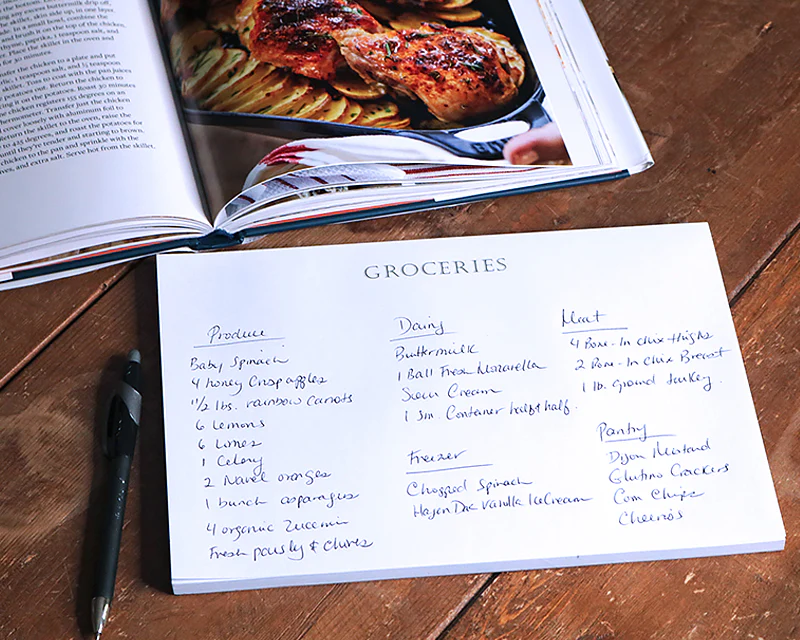 any excess buttermilk drip off,
skillet, skin side up, in one layer,
In a small bowl, combine the
and brush on the top of the chicken,
thyme, paprika, 1 teaspoon salt, and
Place the skillet in the oven and
for 30 minutes.
the chicken to a plate and put
1 teaspoon salt, and ½ teaspoon
skillet. Toss to coat with the pan juices
out. Return the chicken to
it on the potatoes. Roast 30 minutes
registers 155 degrees on an
Transfer just the chicken
tightly with aluminum foil to
Return the skillet to the oven, raise the
to 425 degrees, and roast the potatoes for
until they're tender and starting to brown.
chicken to the pan and sprinkle with the
and extra salt. Serve hot from the skillet.
GROCERIES
Produce
Baby Spinach
4 honey Crisp apples
1 1/2 lbs. rainbow Carrots
6 Lemons
6 Limes
1 Celery
2 Navel oranges
1 bunch asparagus
4 organic Zuccini
Fresh parsly & Chives
Dairy
Buttermilk
1 Ball Fresh Mozarella
Sour Cream
1 sm. Container half & half.
Freezer
Chopped Spinach
Hagen Daz Vanilla Ice Cream
Meat
4 Bone-In Chix thighs
2 Bone-In Chix Breast
1 lb. ground turkey.
Pantry
Dijon Mustard
Glutino Crackers
Corn Chips
Cheerios